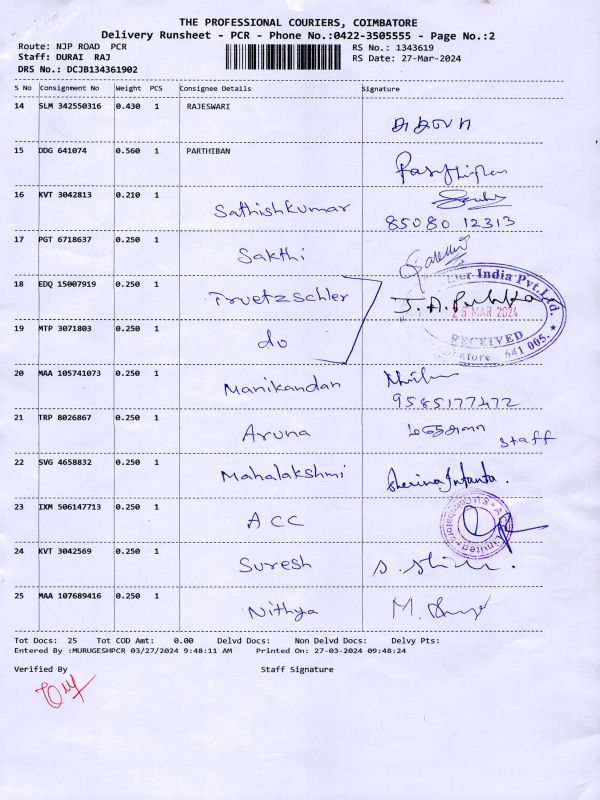 THE PROFESSIONAL COURIERS, COIMBATORE
Delivery Runsheet - PCR - Phone No.:0422-3505555 - Page No.:2
Route: NJP ROAD PCR
RS No.: 1343619
Staff: DURAI RAJ
RS Date: 27-Mar-2024
DRS No.: DCJB134361902
S No Consignment No Weight PCS Consignee Details Signature
14 SLM 342550316 0.430 1 RAJESWARI
15 DDG 641074 0.560 1 PARTHIBAN
Parthiban
16 KVT 3042813 0.210 1 Sathishkumar
85080 12313
17 PGT 6718637 0.250 1 Sakthi
18 EDQ 15007919 0.250 1 Truetzschler
India Pvt. Ltd.
26 MAR 2024
19 MTP 3071803 0.250 1 do
RECEIVED
641 005.
20 MAA 105741073 0.250 1 Manikandan
9585177472
21 TRP 8026867 0.250 1 Aruna
staff
22 SVG 4658832 0.250 1 Mahalakshmi
Sherina Infanta.
23 IXM 506147713 0.250 1 ACC
Limited
24 KVT 3042569 0.250 1 Suresh
25 MAA 107689416 0.250 1 Nithya
Tot Docs: 25 Tot COD Amt: 0.00 Delvd Docs: Non Delvd Docs: Delvy Pts:
Entered By :MURUGESHPCR 03/27/2024 9:48:11 AM Printed On: 27-03-2024 09:48:24
Verified By Staff Signature